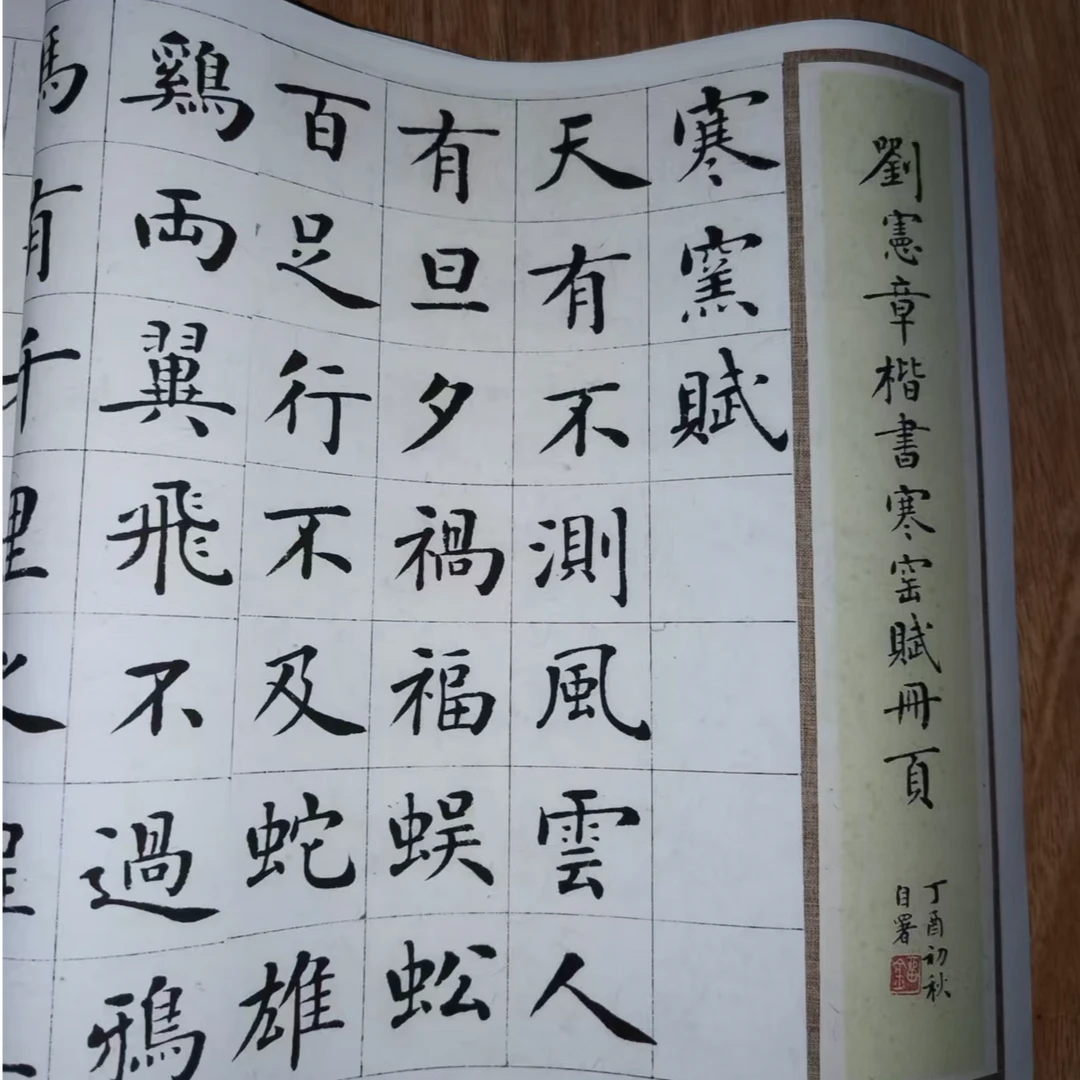 劉憲章楷書寒窑賦冊頁
丁酉初秋
自署
寒窯賦
天有不測風雲人
有旦夕禍福蜈蚣
百足行不及蛇雄
鷄両翼飛不過鴉
馬有千里